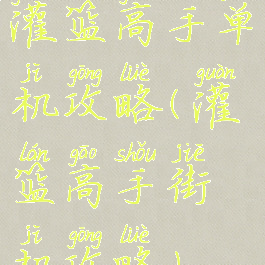 灌篮高手单
jī gōng lüè guàn
机攻略(灌
lán gāo shǒu jiē
篮高手街
jī gōng lüè
机攻略)